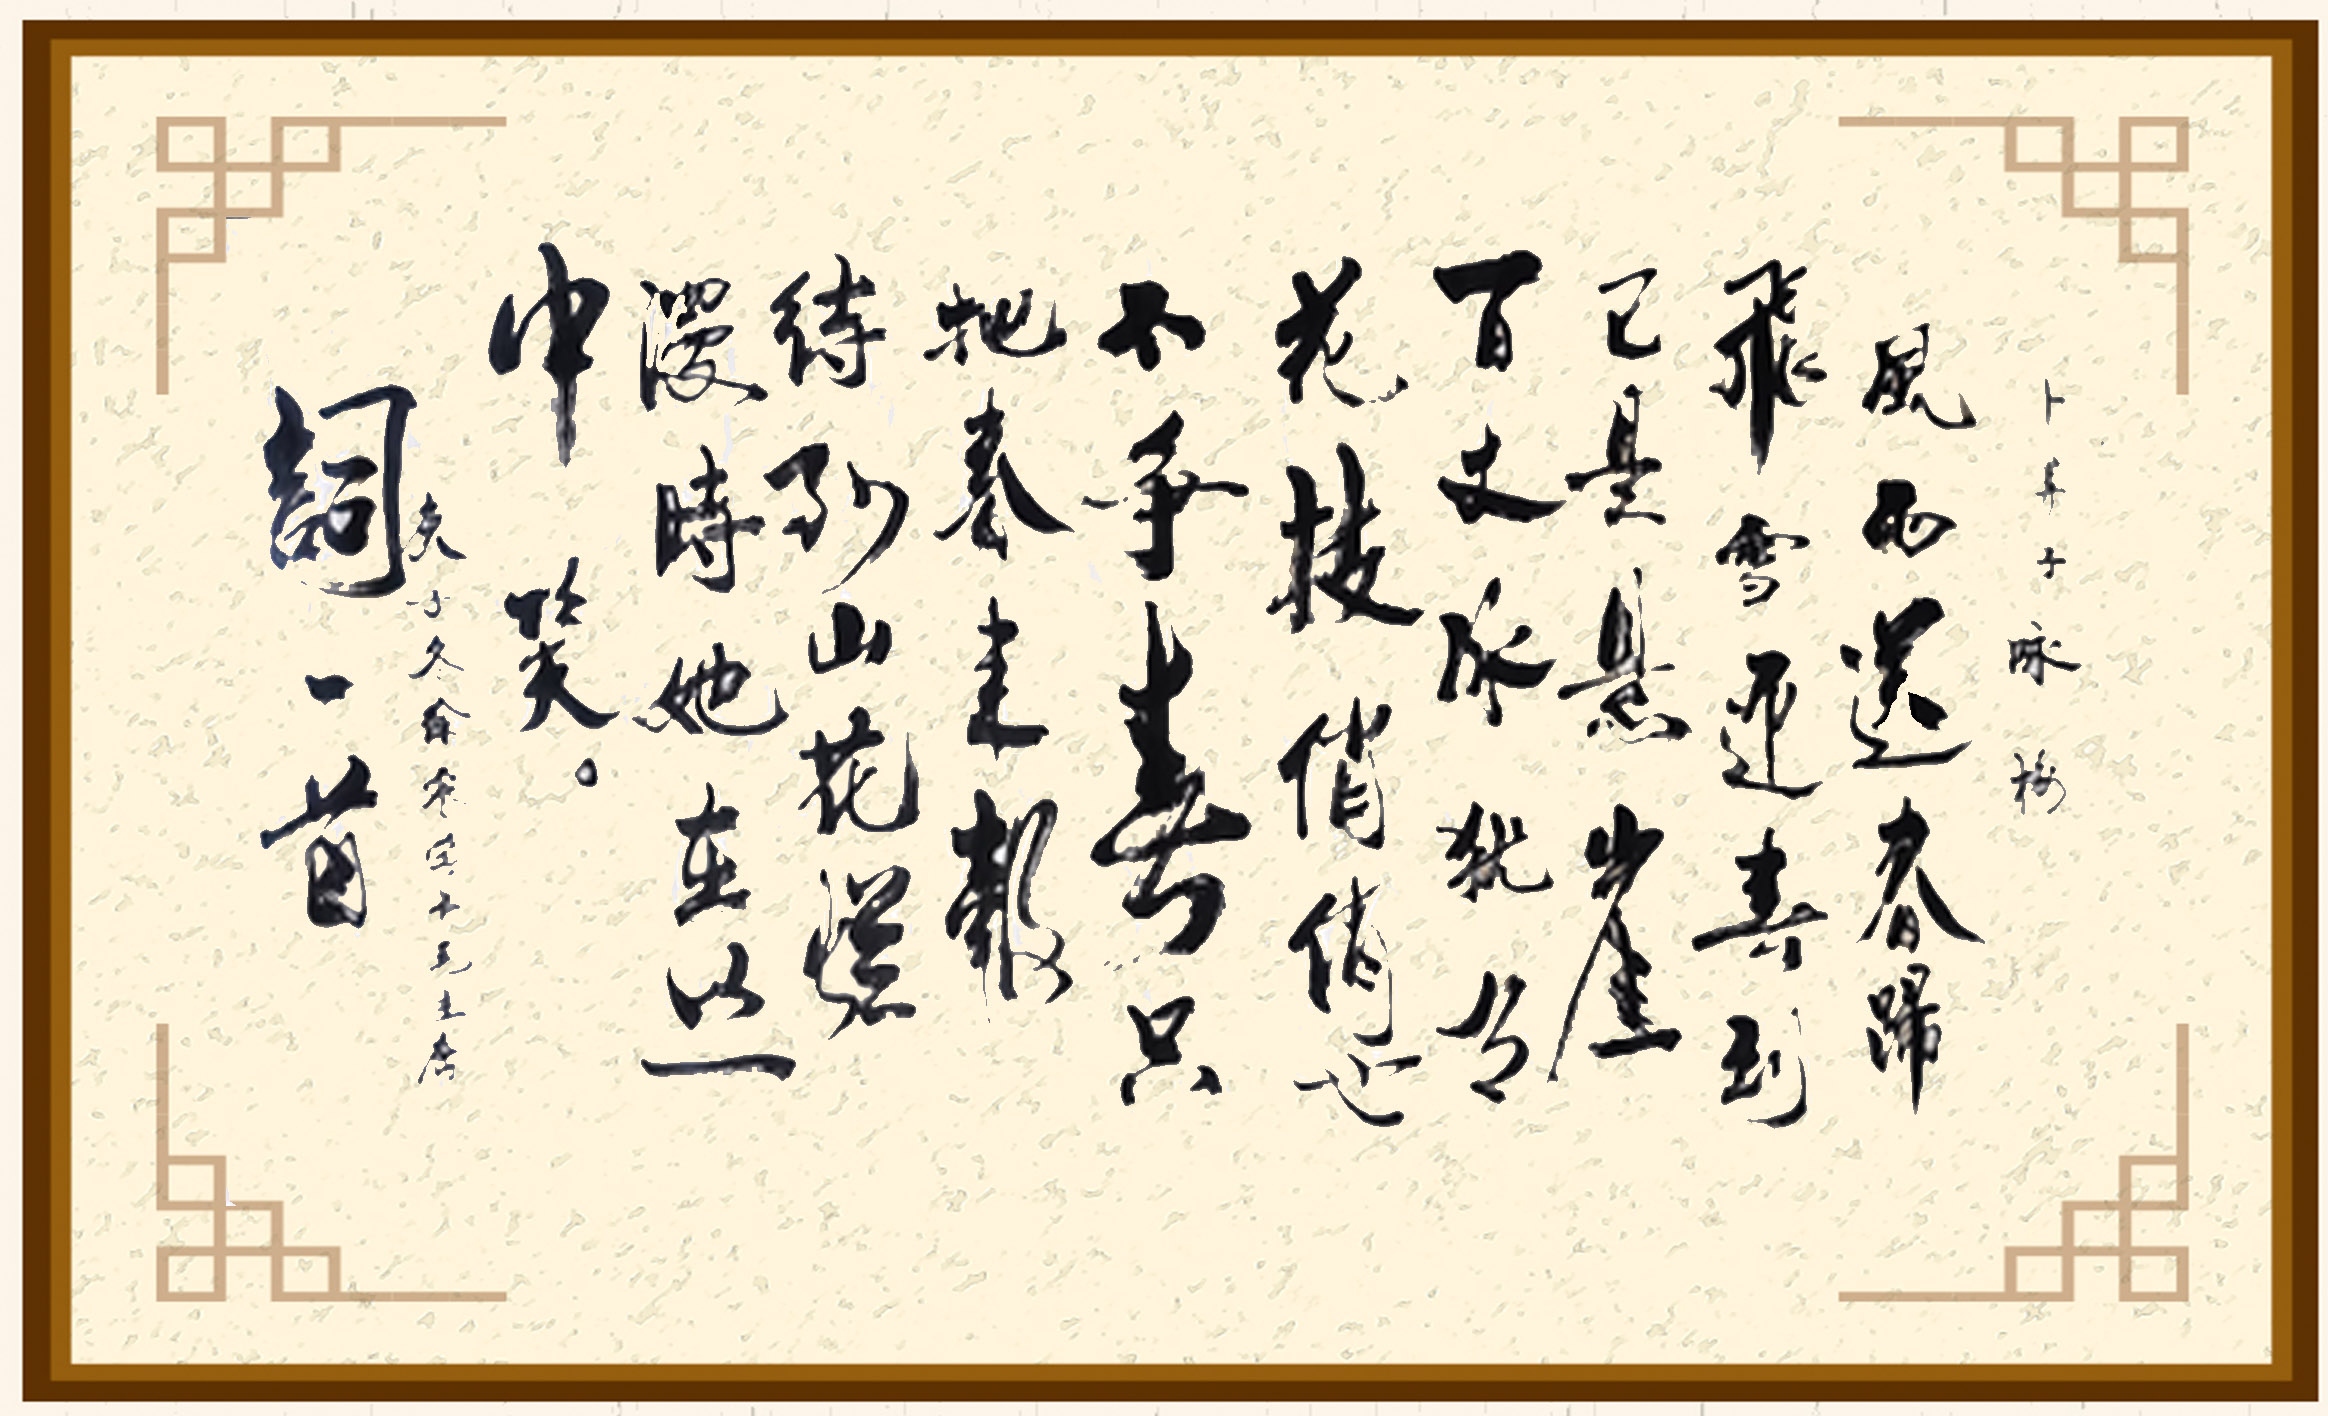 卜算子咏梅
風雨送春歸
飛雪迎春到
已是悬崖
百丈冰犹有
花枝俏俏也
不争春只
把春来報
待到山花爛
漫時她在丛
中笑。
毛主席
詞一首